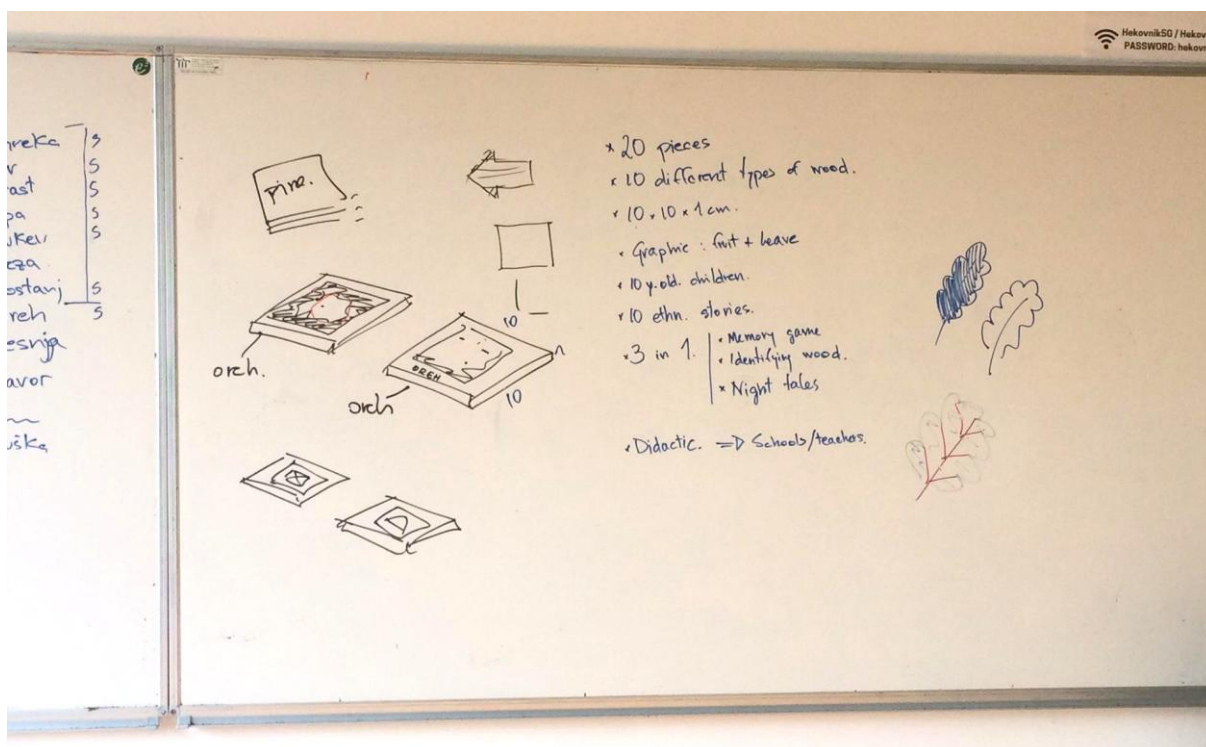 Hekovnik5G / Hekov
PASSWORD: hekovn
reka s
r s
ast s
pa s
s
eza
ostanj s
reh s
esnja
avor
uška
pine.
orch.
orch
OREH
10
10
* 20 pieces
* 10 different types of wood.
* 10 x 10 x 1 cm.
* Graphic : fruit + leave
* 10 y. old. children.
* 10 ethn. stories.
* 3 in 1.
* Memory game
* Identifying wood.
* Night tales
* Didactic. => Schools/teachers.